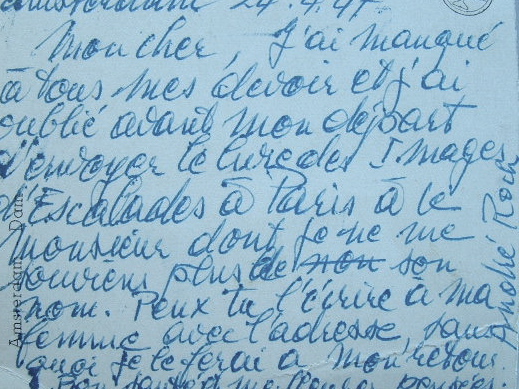 Amsterdam 24.4.47
Mon cher, J'ai manqué
à tous mes devoir et j'ai
oublié avant mon départ
d'envoyer le livre des Images
d'Escalades à Paris à ce
Monsieur dont je ne me
souviens plus de non son
nom. Peux tu l'écrire à ma
femme avec l'adresse, sans
quoi je le ferai à mon retour.
Amsterdam Dam
André Roch